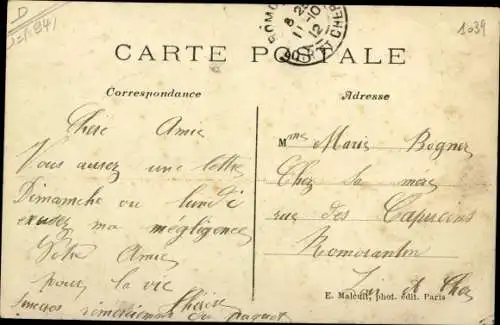 D
1039
ROMO
8 25
11 -10
12
CHER
CARTE POSTALE
Correspondance
Adresse
Chère Amie
Vous aurez une lettre
Dimanche ou lundi
excusez ma négligence
Votre Amie
pour la vie
Thérèse
Sincères du paquet
Mme Marie Bogner
Chez sa mère
rue des Capucins
Romorantin
Loir et Cher
E. Malcuit, phot. édit. Paris